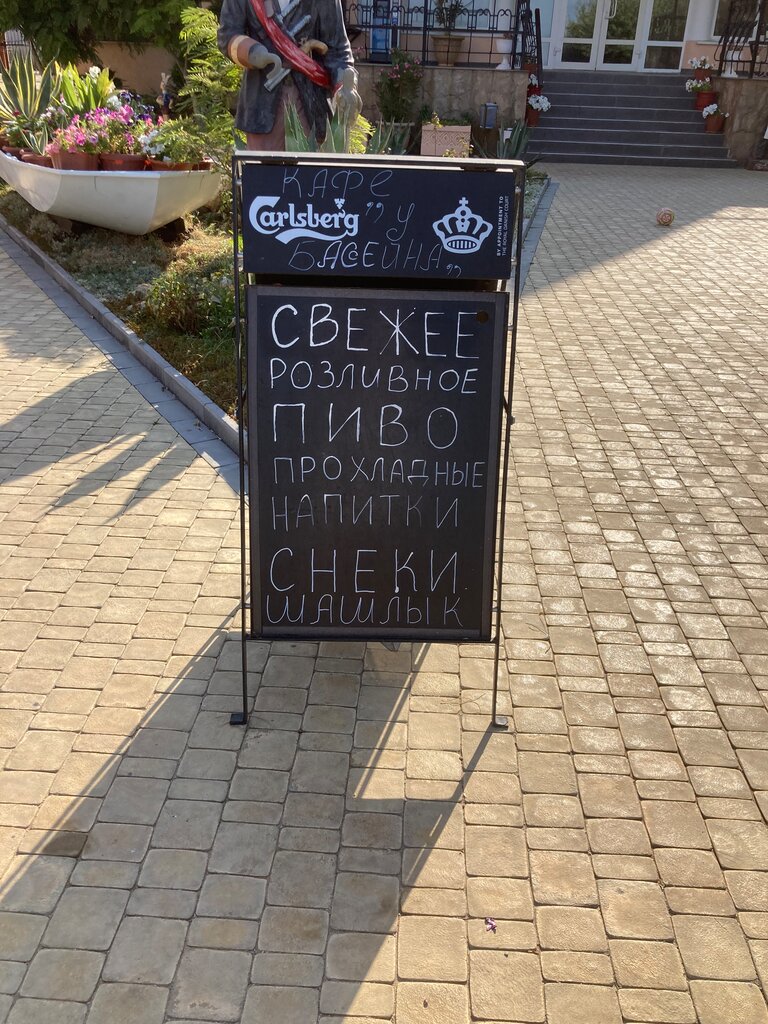 КАФЕ
Carlsberg
"У
БАССЕЙНА"
BY APPOINTMENT TO
THE ROYAL DANISH COURT
СВЕЖЕЕ
РОЗЛИВНОЕ
ПИВО
ПРОХЛАДНЫЕ
НАПИТКИ
СНЕКИ
ШАШЛЫК